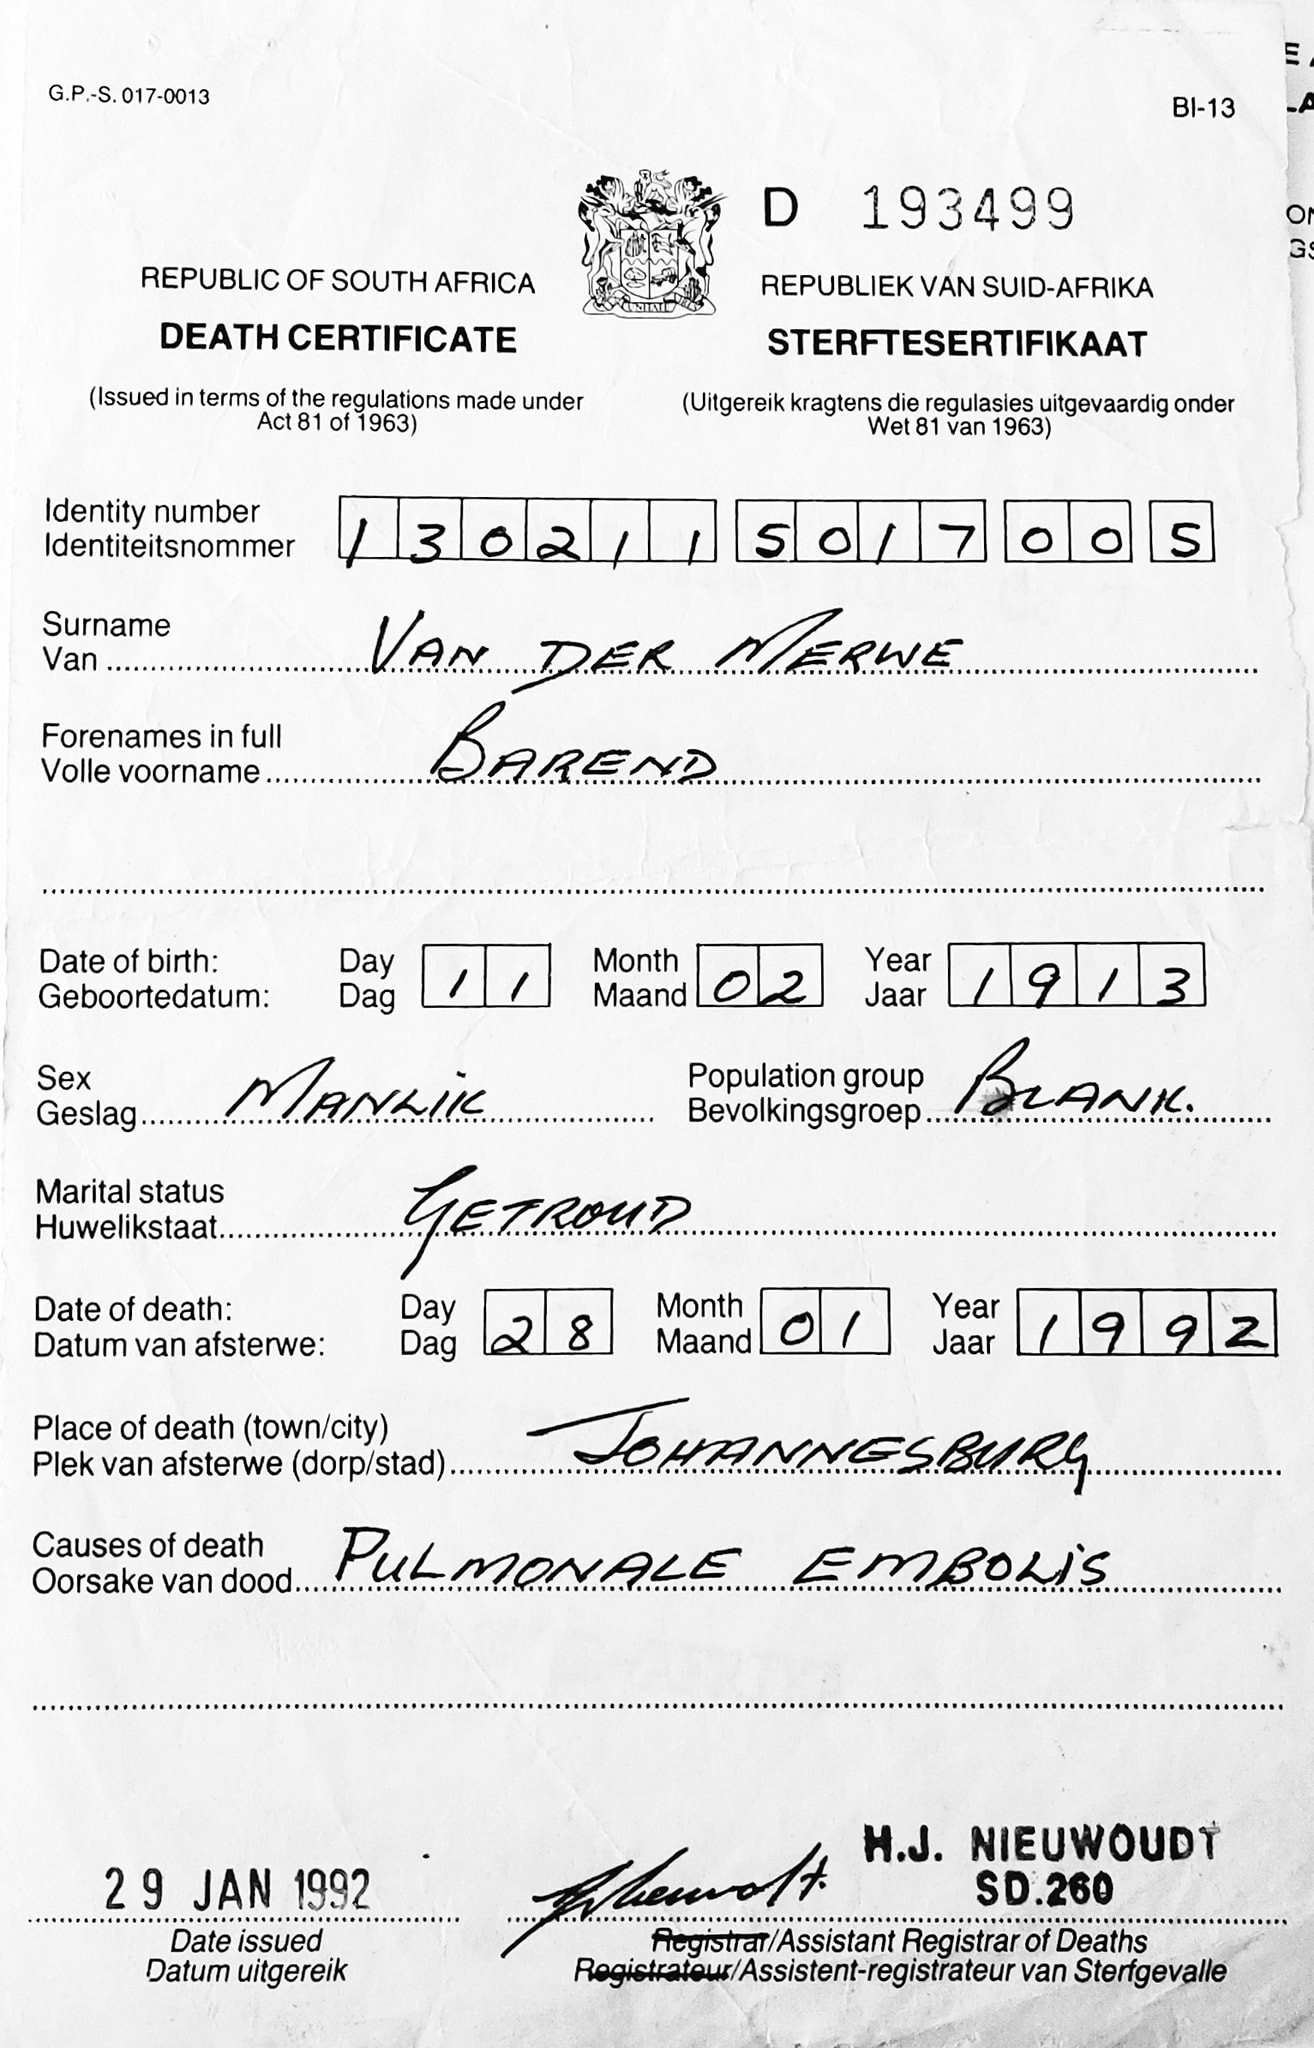 G.P.-S. 017-0013
BI-13
D 193499
REPUBLIC OF SOUTH AFRICA
REPUBLIEK VAN SUID-AFRIKA
DEATH CERTIFICATE
STERFTESERTIFIKAAT
(Issued in terms of the regulations made under
Act 81 of 1963)
(Uitgereik kragtens die regulasies uitgevaardig onder
Wet 81 van 1963)
Identity number
Identiteitsnommer 130211 5017 00 5
Surname
Van VAN DER MERWE
Forenames in full
Volle voorname BAREND
Date of birth: Day Month Year
Geboortedatum: Dag 11 Maand 02 Jaar 1913
Sex
Geslag MANLIK
Population group
Bevolkingsgroep BLANK.
Marital status
Huwelikstaat GETROUD
Date of death: Day Month Year
Datum van afsterwe: Dag 28 Maand 01 Jaar 1992
Place of death (town/city)
Plek van afsterwe (dorp/stad) JOHANNESBURG
Causes of death
Oorsake van dood PULMONALE EMBOLIS
H.J. NIEUWOUDT
SD.260
29 JAN 1992
Date issued
Datum uitgereik
Registrar/Assistant Registrar of Deaths
Registrateur/Assistent-registrateur van Sterfgevalle